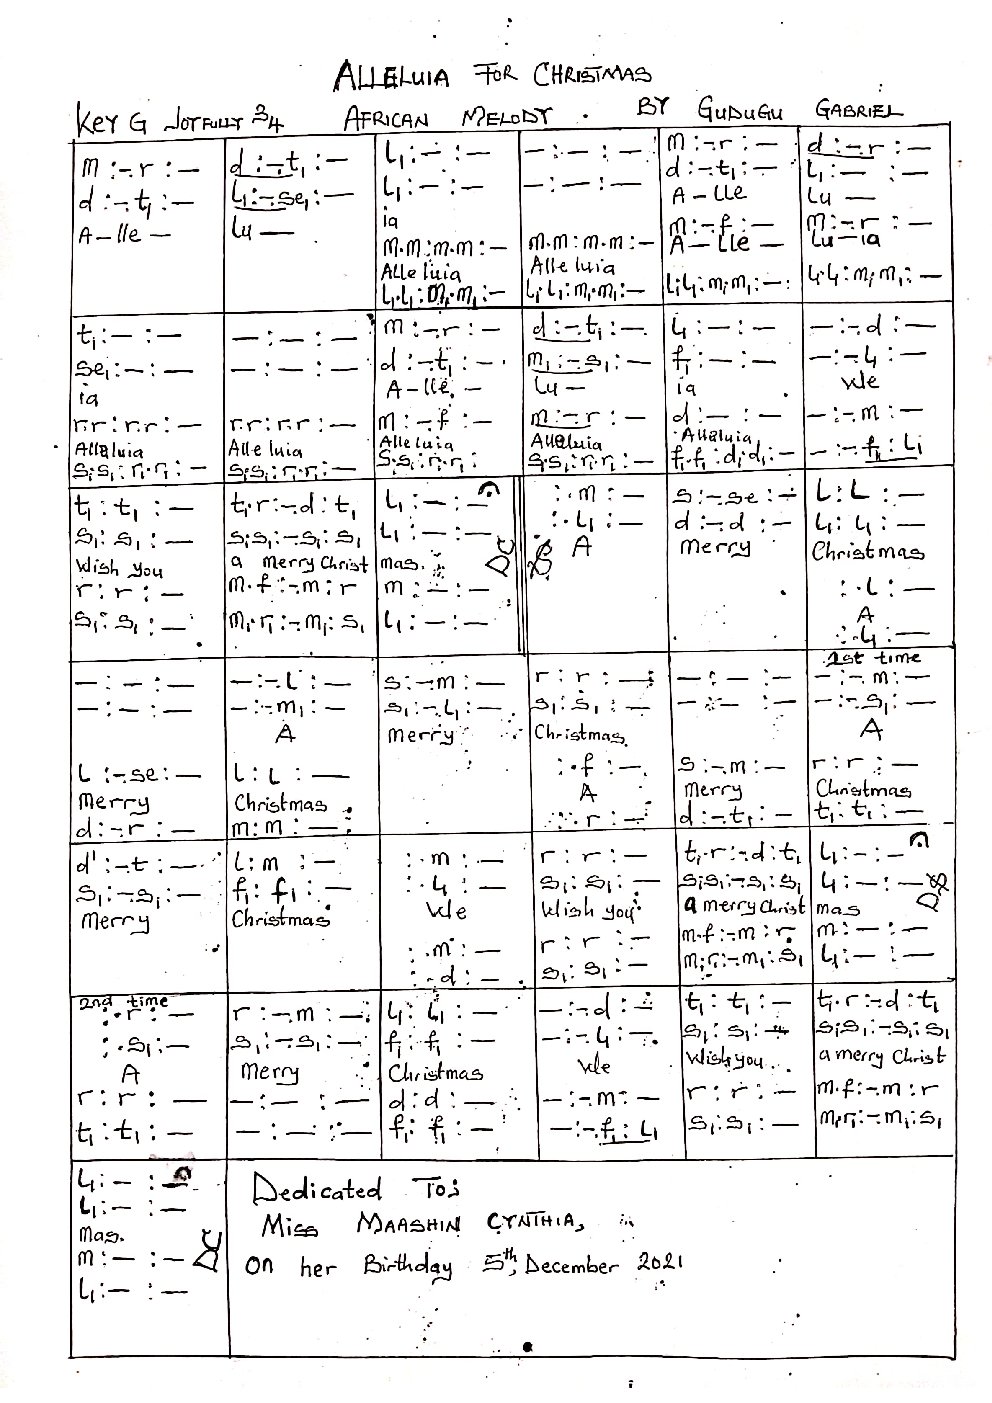 ALLELUIA FOR CHRISTMAS
Key G JOYFULLY 3/4 AFRICAN MELODY . BY GUDUGU GABRIEL
m :-.r : — | d :-.t₁ : — | L₁ : — : — | — : — : — | m :-.r : — | d :-.r : —
d :-.t₁ : — | L₁ :-.se₁ : — | L₁ : — : — | — : — : — | d :-.t₁ : — | L₁ : — : —
A-lle — | Lu — | ia | | A-lle | Lu —
m.m : m.m : — | m.m : m.m : — | m :-.f : — | m :-.r : —
Alleluia | Alleluia | A-lle — | Lu-ia
L₁.L₁ : m₁.m₁ : — | L₁.L₁ : m₁.m₁ : — | L₁.L₁ : m₁.m₁ : — | L₁.L₁ : m₁.m₁ : —
t₁ : — : — | — : — : — | m :-.r : — | d :-.t₁ : — | L₁ : — : — | — :-.d : —
se₁ : — : — | — : — : — | d :-.t₁ : — | m₁ :-.s₁ : — | f₁ : — : — | — :-.L₁ : —
ia | | A-lle — | Lu — | ia | We
r.r : r.r : — | r.r : r.r : — | m :-.f : — | m :-.r : — | d : — : — | — :-.m : —
Alleluia | Alleluia | Alleluia | Alleluia | Alleluia
s₁.s₁ : r₁.r₁ : — | s₁.s₁ : r₁.r₁ : — | s₁.s₁ : r₁.r₁ : | s₁.s₁ : r₁.r₁ : — | f₁.f₁ : d₁.d₁ : — | — :-.f₁ : L₁
t₁ : t₁ : — | t₁.r :-.d : t₁ | L₁ : — : — | : .m : — | s :-.se : — | L : L : —
s₁ : s₁ : — | s₁.s₁ :-.s₁ : s₁ | L₁ : — : — | : .L₁ : — | d :-.d : — | L₁ : L₁ : —
Wish you | a merry Christ | mas. | DC | A | Merry | Christmas
r : r : — | m.f :-.m : r | m : — : — | : .L : —
A
s₁ : s₁ : — | m₁.r₁ :-.m₁ : s₁ | L₁ : — : — | : .L₁ : —
1st time
— : — : — | — :-.L : — | s :-.m : — | r : r : — | — : — : — | — :-.m : —
— : — : — | — :-.m₁ : — | s₁ :-.L₁ : — | s₁ : s₁ : — | — : — : — | — :-.s₁ : —
A | Merry | Christmas. | A
L :-.se : — | L : L : — | : .f : — | s :-.m : — | r : r : —
Merry | Christmas | A | Merry | Christmas
d :-.r : — | m : m : — | : .r : — | d :-.t₁ : — | t₁ : t₁ : —
d' :-.t : — | L : m : — | : .m : — | r : r : — | t₁.r :-.d : t₁ | L₁ : — : —
s₁ :-.s₁ : — | f₁ : f₁ : — | : .L₁ : — | s₁ : s₁ : — | s₁.s₁ :-.s₁ : s₁ | L₁ : — : —
Merry | Christmas | We | Wish you | a merry Christ | mas
: .m : — | r : r : — | m.f :-.m : r | m : — : —
: .d : — | s₁ : s₁ : — | m₁.r₁ :-.m₁ : s₁ | L₁ : — : —
2nd time
: .r : — | r :-.m : — | L₁ : L₁ : — | — :-.d : — | t₁ : t₁ : — | t₁.r :-.d : t₁
: .s₁ : — | s₁ :-.s₁ : — | f₁ : f₁ : — | — :-.L₁ : — | s₁ : s₁ : — | s₁.s₁ :-.s₁ : s₁
A | Merry | Christmas | We | Wish you | a merry Christ
r : r : — | — : — : — | d : d : — | — :-.m : — | r : r : — | m.f :-.m : r
t₁ : t₁ : — | — : — : — | f₁ : f₁ : — | — :-.f₁ : L₁ | s₁ : s₁ : — | m₁.r₁ :-.m₁ : s₁
L₁ : — : —
L₁ : — : —
Mas.
m : — : — DC
L₁ : — : —
Dedicated To:
Miss MAASHIN CYNTHIA,
On her Birthday 5th, December 2021